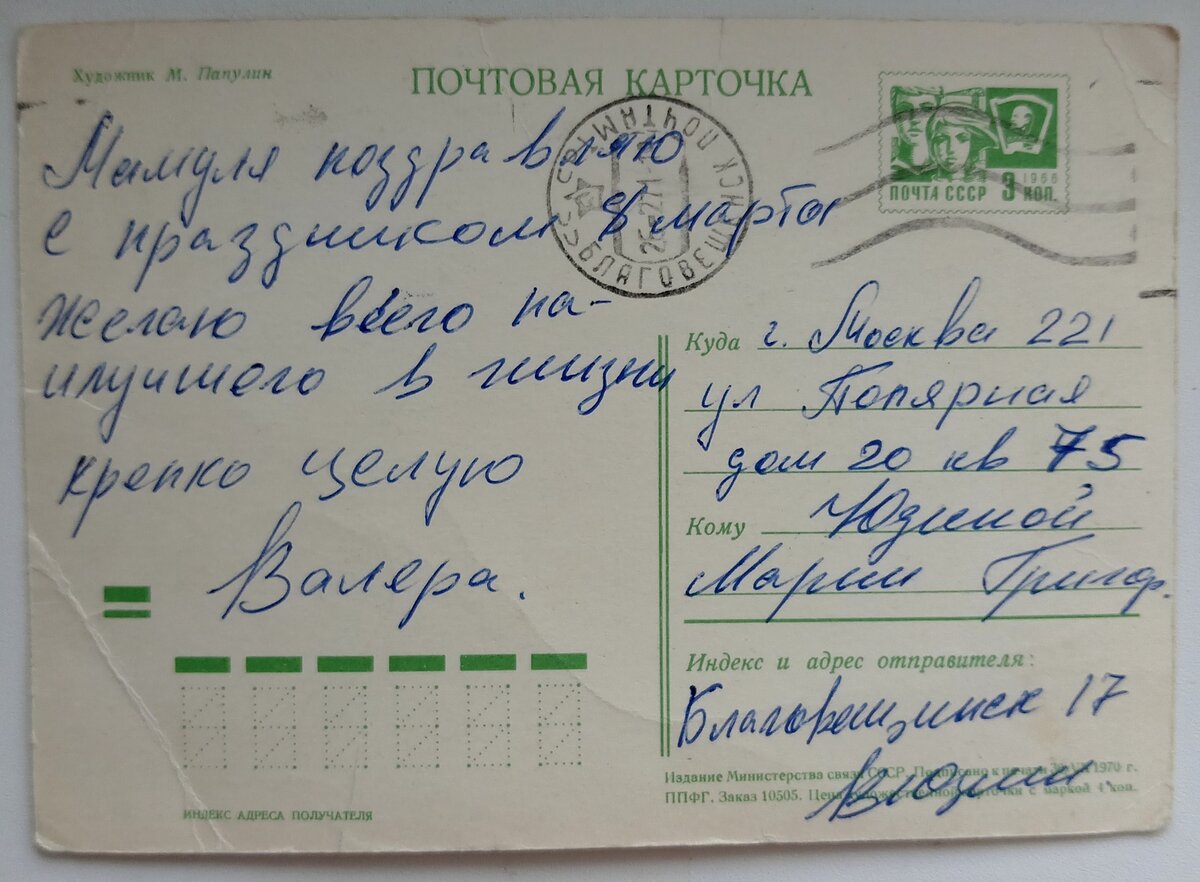 Художник М. Папулин
ПОЧТОВАЯ КАРТОЧКА
ПОЧТА СССР 3 КОП.
1966
БЛАГОВЕЩЕНСК ПОЧТАМТ
СССР
Мамуля поздравляю
с праздником 8 марта
желаю всего на-
илучшего в жизни
крепко целую
Валера.
Куда г. Москва 221
ул Полярная
дом 20 кв 75
Кому Юдиной
Марии Григор.
Индекс и адрес отправителя:
Благовещинск 17
В Юдин.
Издание Министерства связи СССР. Подписано к печати 1970 г.
ППФГ. Заказ 10505. Цена художественной карточки с маркой 4 коп.
ИНДЕКС АДРЕСА ПОЛУЧАТЕЛЯ